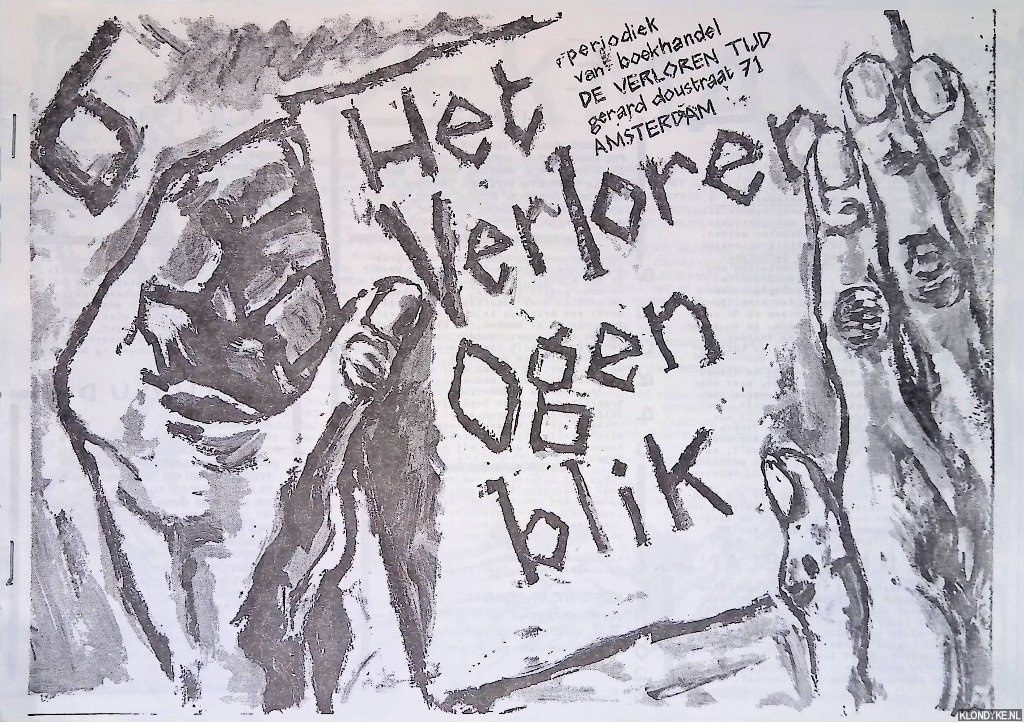 6
Het
Verloren
Ogen
blik
periodiek
van boekhandel
DE VERLOREN TIJD
gerard doustraat 71
AMSTERDAM
KLONDYKE.NL